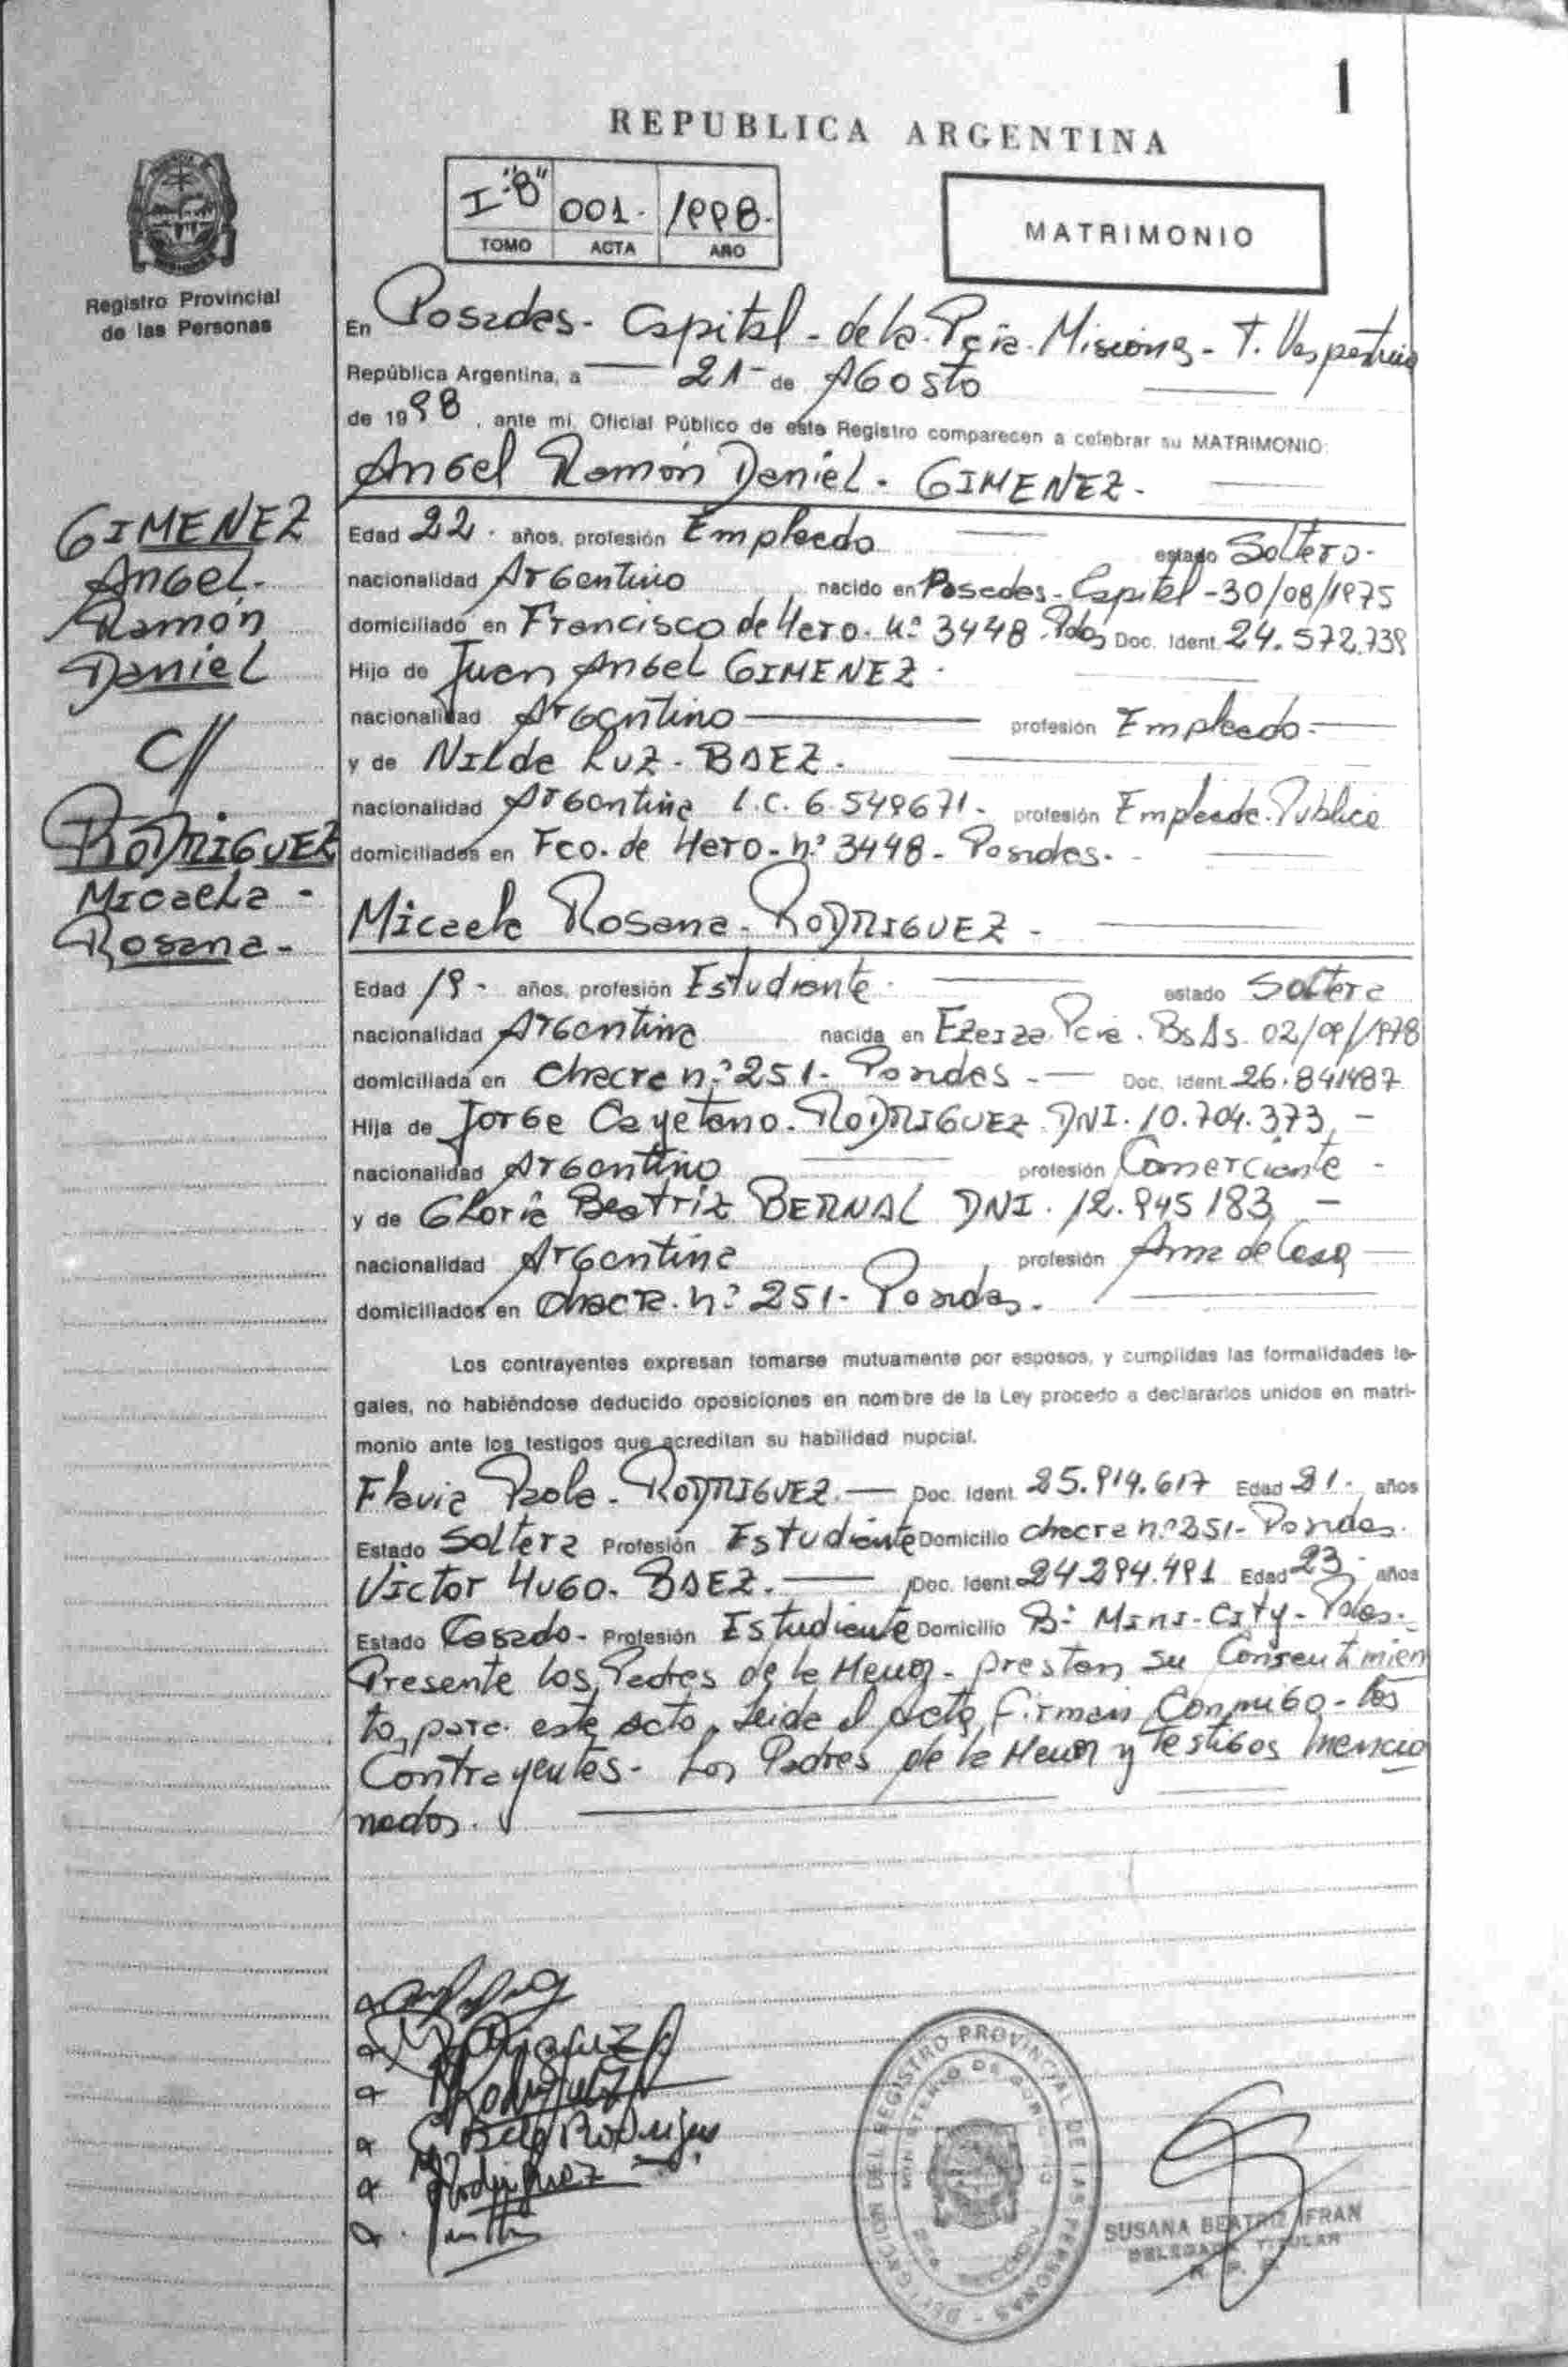 1
REPUBLICA ARGENTINA
I-"B" 001. 1998.
TOMO ACTA AÑO
MATRIMONIO
Registro Provincial
de las Personas
En Posadas - Capital - de la Pcia. Misiones - T. Vespertino
República Argentina, a 21 - de AGosto
de 1998, ante mi, Oficial Público de este Registro comparecen a celebrar su MATRIMONIO:
Angel Ramón Daniel - GIMENEZ -
GIMENEZ
Angel -
Ramón
Daniel
C//
RODRIGUEZ
Micaela -
Rosana -
Edad 22 - años, profesión Empleado estado Soltero -
nacionalidad Argentino nacido en Posadas - Capital - 30/08/1975
domiciliado en Francisco de Hero. nº 3448 Pdas Doc. Ident. 24.572.738
Hijo de Juan Angel GIMENEZ -
nacionalidad Argentino profesión Empleado -
y de Nilda Luz - BAEZ -
nacionalidad Argentina L.C. 6.549671 - profesión Empleada Publica
domiciliados en Fco. de Hero - nº 3448 - Posadas. -
Micaela Rosana - RODRIGUEZ -
Edad 19 - años, profesión Estudiante - estado Soltera
nacionalidad Argentina nacida en Ezeiza Pcia. Bs As. 02/09/1978
domiciliada en Chacra nº 251 - Posadas - Doc. Ident. 26.841487
Hija de Jorge Cayetano - RODRIGUEZ DNI. 10.704.373 -
nacionalidad Argentino profesión Comerciante -
y de Gloria Beatriz BERNAL DNI. 12.945 183 -
nacionalidad Argentina profesión Ama de Casa
domiciliados en Chacra nº 251 - Posadas.
Los contrayentes expresan tomarse mutuamente por esposos, y cumplidas las formalidades le-
gales, no habiéndose deducido oposiciones en nombre de la Ley procedo a declararlos unidos en matri-
monio ante los testigos que acreditan su habilidad nupcial.
Flavia Paola - RODRIGUEZ - Doc. Ident. 25.914.617 Edad 21 - años
Estado Soltera Profesión Estudiante Domicilio chacra nº 251 - Posadas.
Victor Hugo - BAEZ - Doc. Ident. 24294.491 Edad 23 - años
Estado Casado - Profesión Estudiante Domicilio Bº Mini-City - Pdas -
Presente los Padres de la Menor - prestan su Consentimien
to, para este acto, Leida el Acta, Firman Conmigo - los
Contrayentes - Los Padres de la Menor y testigos mencio
nados.
Rodriguez
DELEGACION DEL REGISTRO PROVINCIAL DE LAS PERSONAS
MINISTERIO DE GOBIERNO
SUSANA BEATRIZ IFRAN
DELEGADA TITULAR